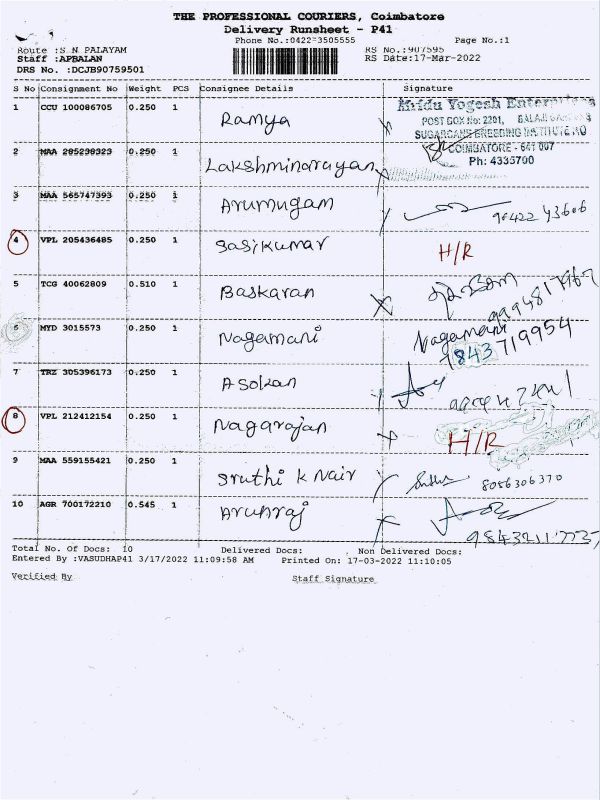 THE PROFESSIONAL COURIERS, Coimbatore
Delivery Runsheet - P41
Phone No.:0422-3505555 Page No.:1
Route :S N PALAYAM RS No.:907595
Staff :APBALAN RS Date:17-Mar-2022
DRS No. :DCJB90759501
S No Consignment No Weight PCS Consignee Details Signature
1 CCU 100086705 0.250 1 Ramya
Mridu Yogesh Enterprises
POST BOX No: 2201,
SUGARCANE BREEDING INSTITUTE
COIMBATORE - 641 007
Ph: 4335700
2 MAA 285238323 0.250 1 Lakshminarayan
3 MAA 565747393 0.250 1 Arumugam 90422 43606
4 VPL 205436485 0.250 1 Sasikumar H/R
5 TCG 40062809 0.510 1 Baskaran 9994817967
6 MYD 3015573 0.250 1 Nagamani Nagamani
7843719954
7 TRZ 305396173 0.250 1 Asokan
8 VPL 212412154 0.250 1 Nagarajan H/R
9 MAA 559155421 0.250 1 Sruthi K Nair 8056306370
10 AGR 700172210 0.545 1 Arunraj
Total No. Of Docs: 10 Delivered Docs: Non Delivered Docs:
Entered By :VASUDHAP41 3/17/2022 11:09:58 AM Printed On: 17-03-2022 11:10:05
Verified By Staff Signature